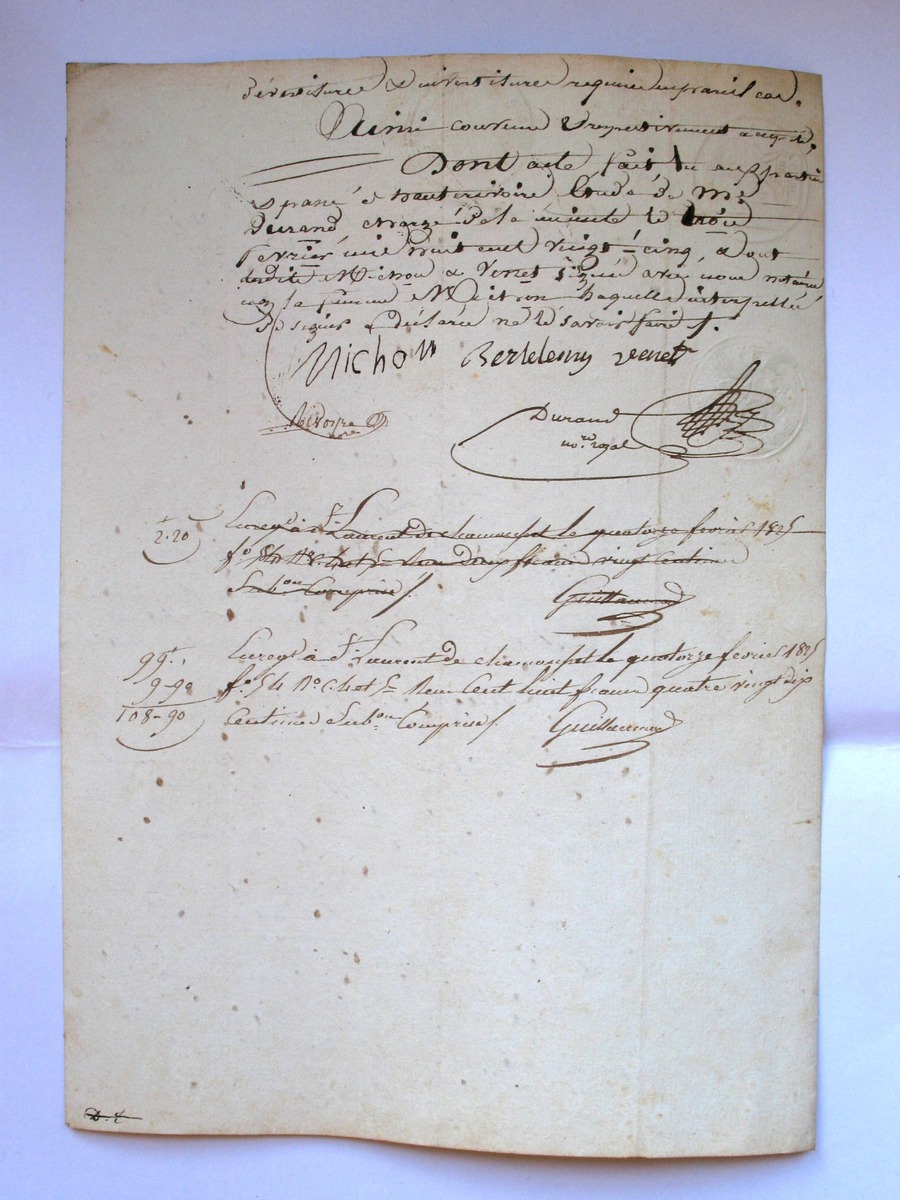 dévestiture & investiture requises en pareil cas.
Ainsi convenu & respectivement accepté,
Dont acte fait lu aux parties
& passé à hauterivoire Étude de Me
Durand, chargé de la minute le trois
février mil huit cent vingt-cinq, & ont
lesdits Michon & Venet signé avec nous notaires
non la femme Michon laquelle interpellée
de signer a déclaré ne le savoir faire ./.
Michon Bertelemy venet
Durand
nore royal
2-20
Enregé à St Laurent de chamousset le quatorze février 1825
fo 54 Ro C. 4 et 5 Reçu deux francs vingt Centimes
Subon Comprise /. Guillaumod
99 .
9-90
108-90
Enregé à St Laurent de chamousset le quatorze février 1825
fo 54 Ro C. 4 et 5 Reçu Cent huit francs quatre vingt dix
Centimes Subon Comprise /. Guillaumod